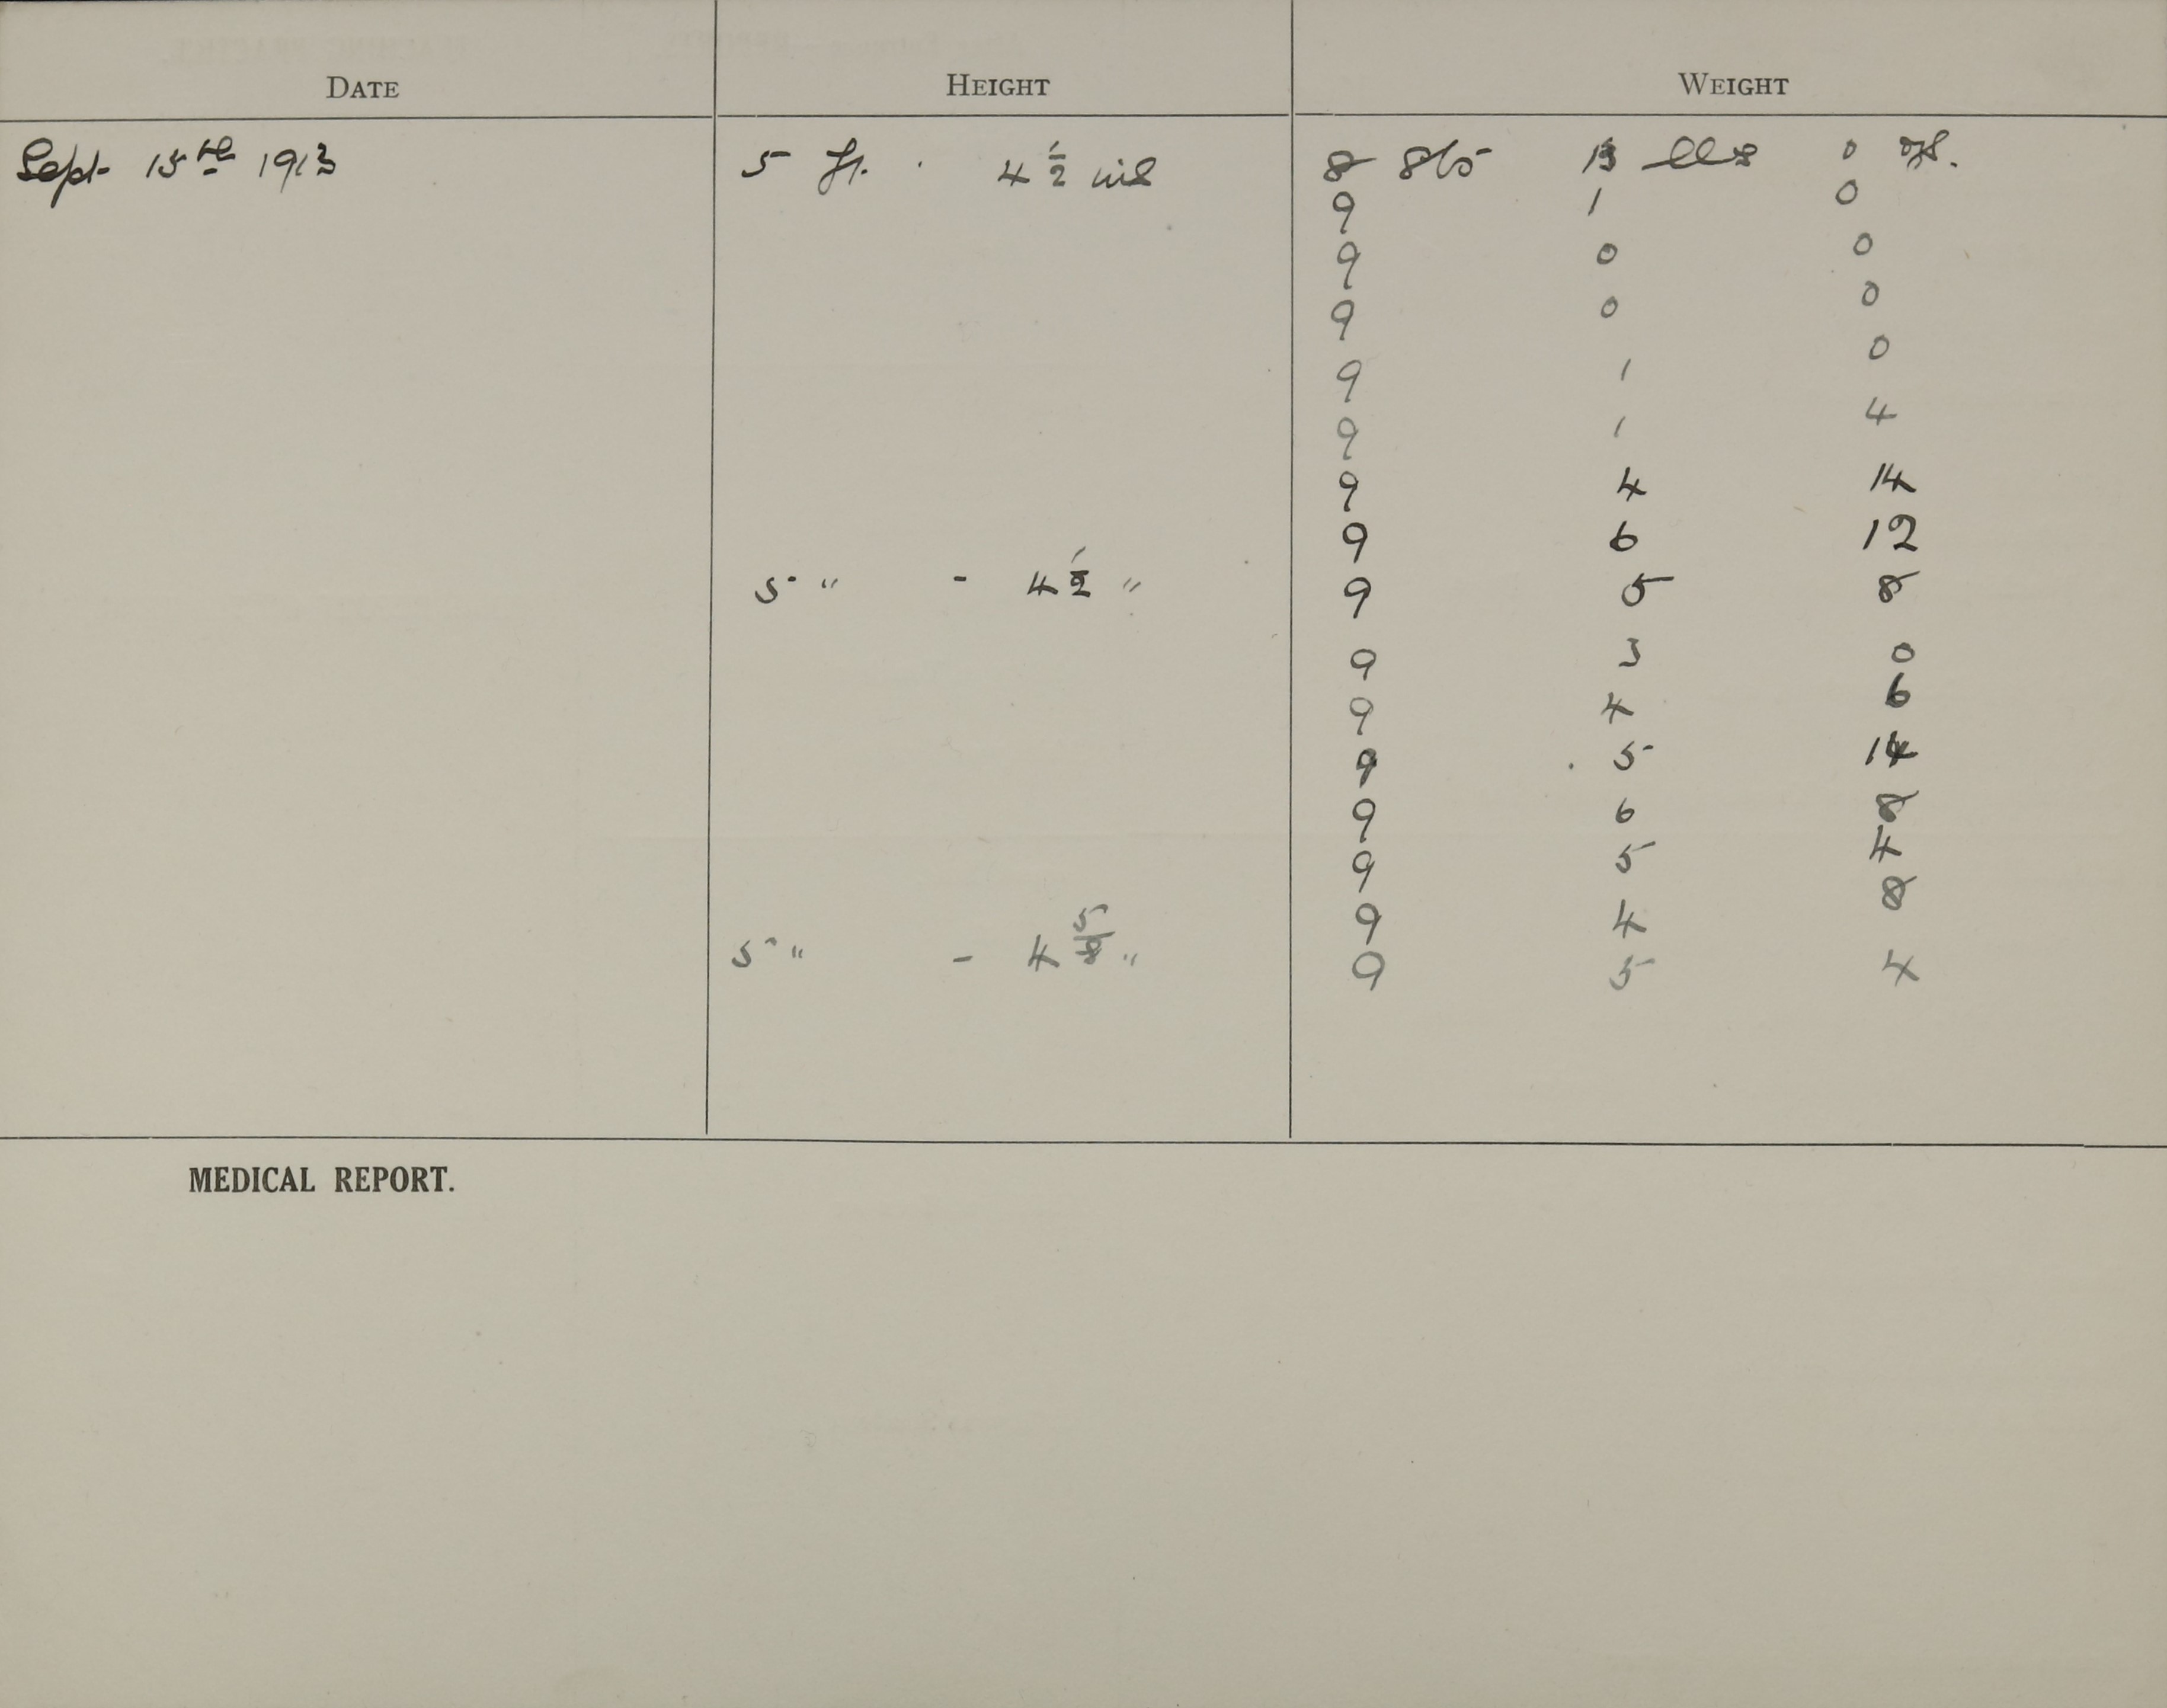 DATE HEIGHT WEIGHT
Sept. 15th 1913 5 ft. 4 1/2 ins 8 sts 13 lbs 0 ozs.
9 1 0
9 0 0
9 0 0
9 1 0
9 1 4
9 4 14
9 6 12
5 " - 4 1/2 " 9 5 8
9 3 0
9 4 6
9 5 14
9 6 8
9 5 4
9 4 8
5 " - 4 5/8 " 9 5 4
MEDICAL REPORT.